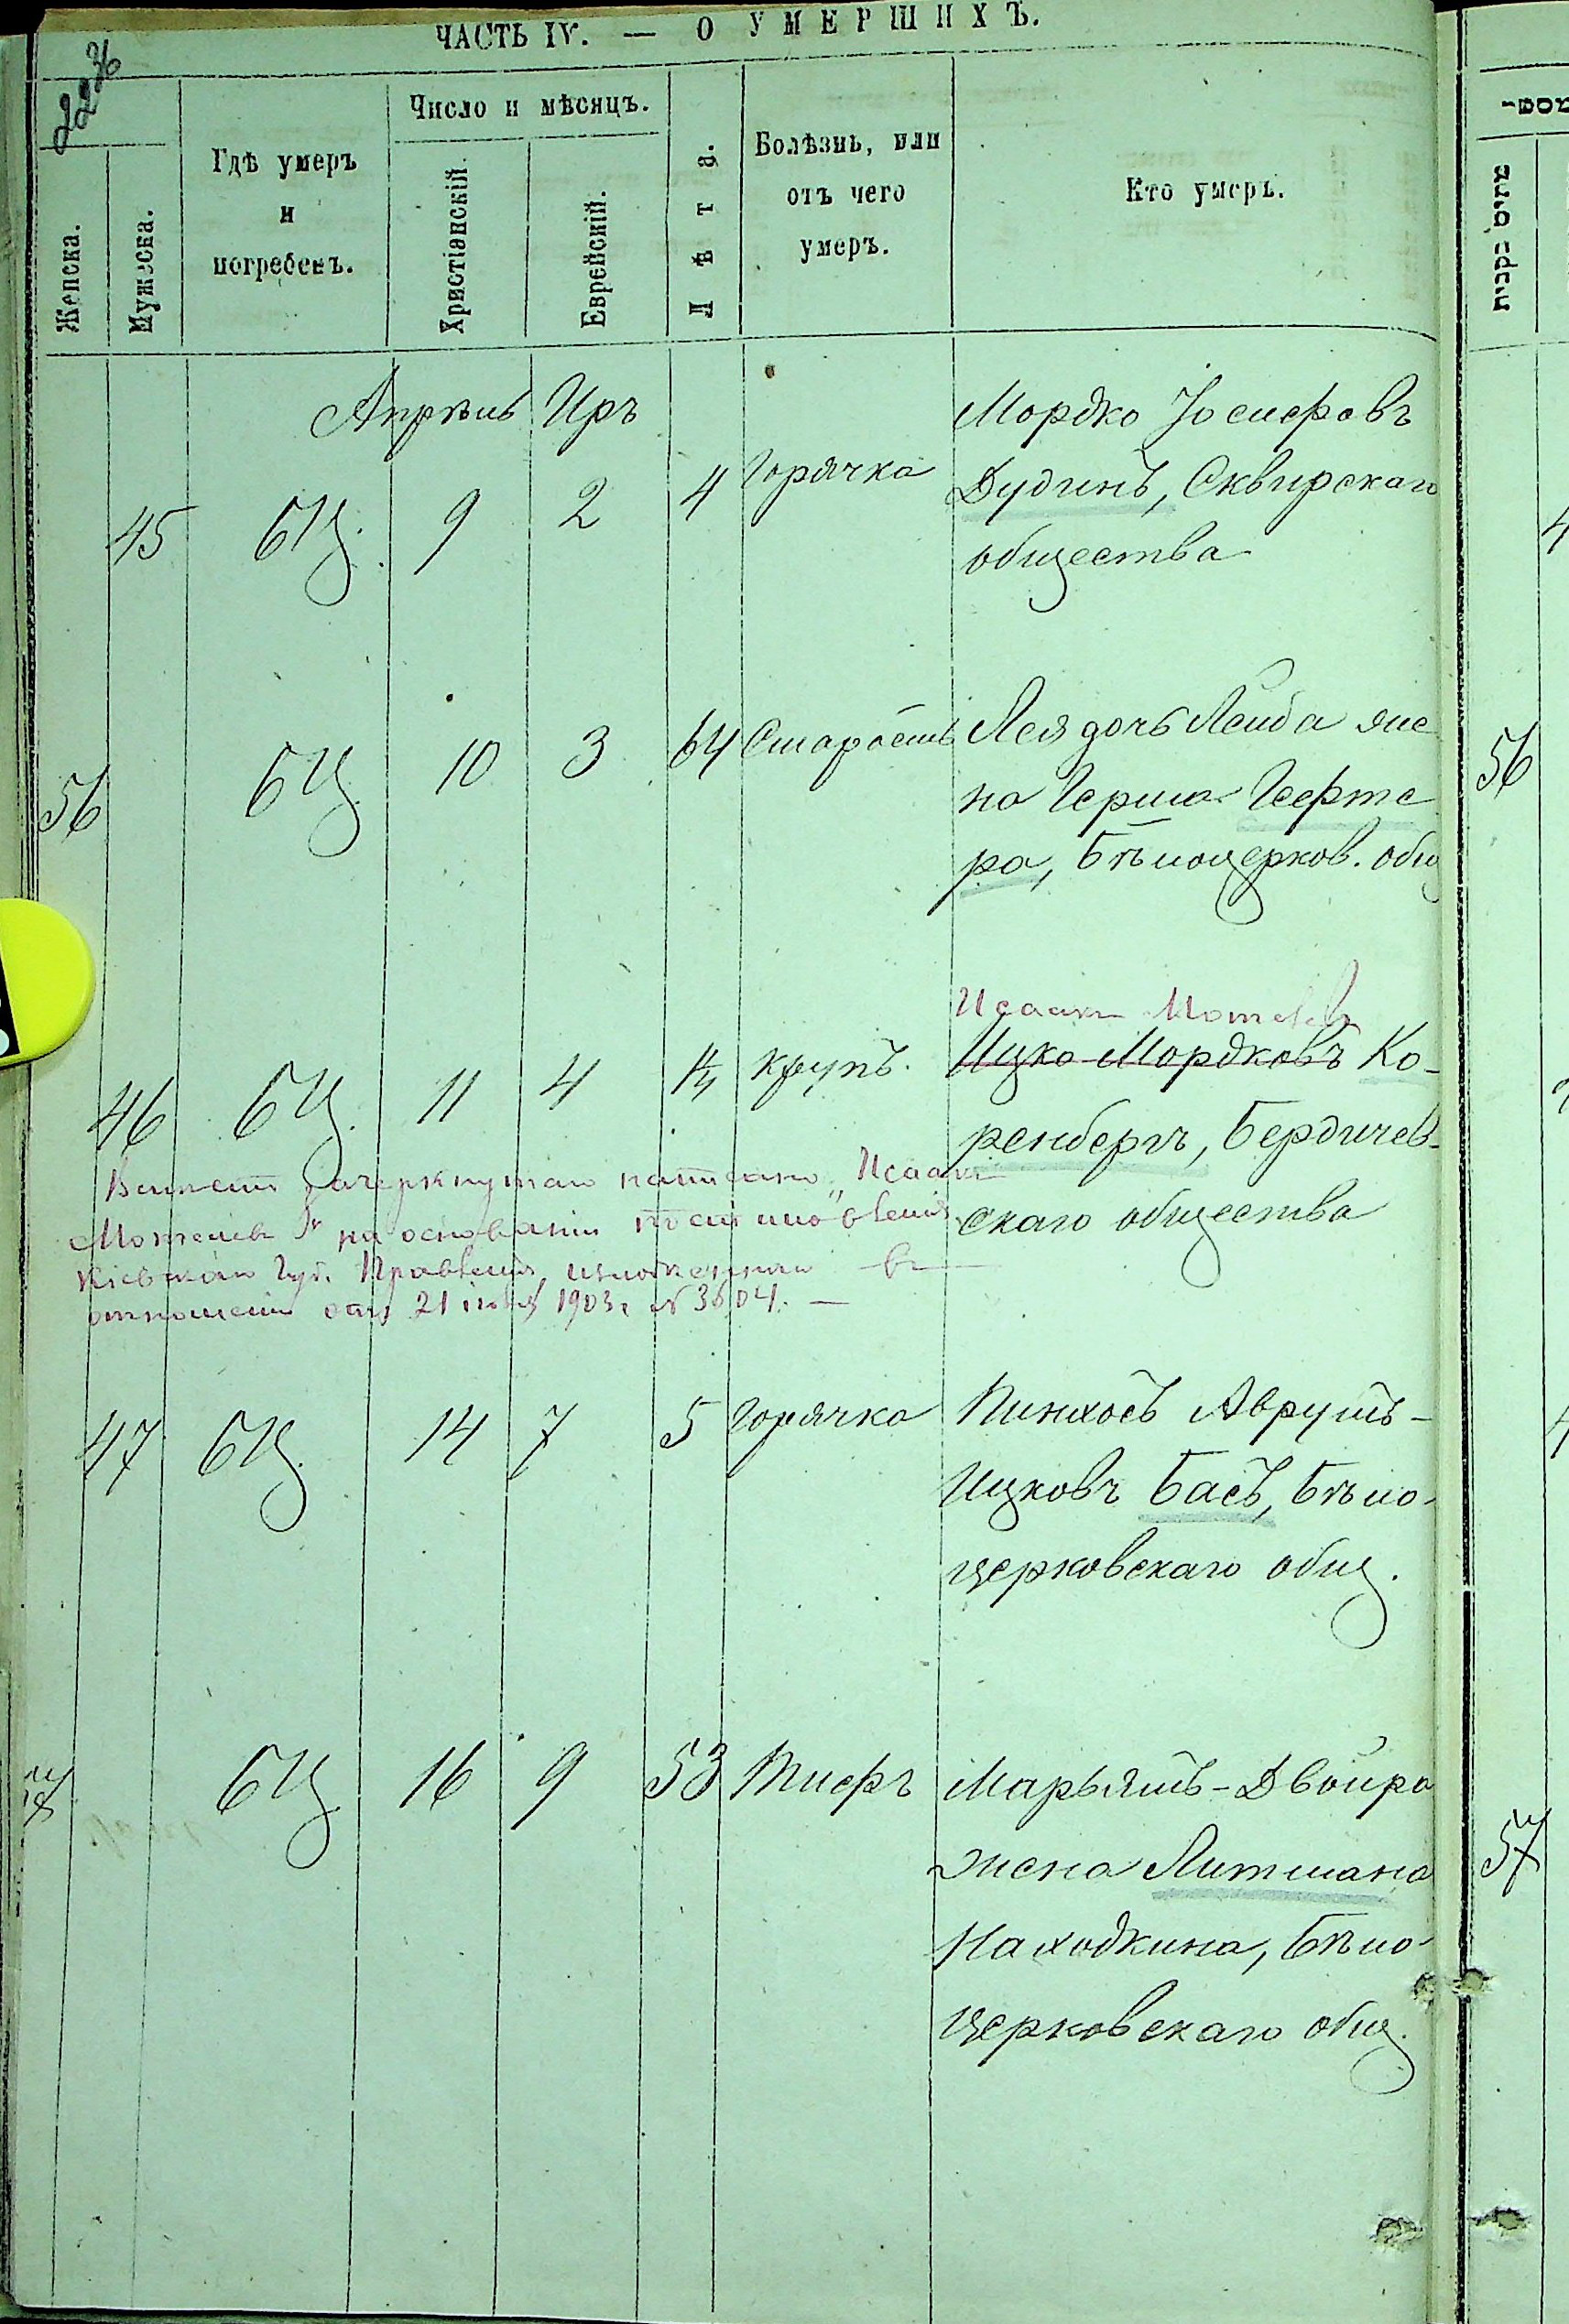 ЧАСТЬ IV. — О УМЕРШИХЪ.
Женска.
Мужеска.
Гдѣ умеръ
и
погребенъ.
Число и мѣсяцъ.
Христіанскій.
Еврейскій.
Лѣта.
Болѣзнь, или
отъ чего
умеръ.
Кто умеръ.
מתים נקבות
Апрѣль Иръ
Мордко Іосифовъ
45 БЦ. 9 2 4 Горячка Дудинъ, Сквирскаго
общества
56 БЦ. 10 3 64 Старость Лея дочь Лейба же
на Герша Гефте
ра, Бѣлоцерков. общ
56
Исаакъ Мотелевъ
46 БЦ. 11 4 крупъ. Ицко-Мордковъ Ко-
ренбергъ, Бердичев-
скаго общества
Вмѣсто зачеркнутаго написано „Исаакъ
Мотелевъ" на основаніи постановленія
Кіевскаго Губ. Правленія, изложеннаго въ
отношеніи отъ 21 1903 г. № 3604. —
47 БЦ. 14 7 5 Горячка Пинхосъ Аврумъ-
Ицковъ Басъ, Бѣло-
церковскаго общ.
57 БЦ. 16 9 53 Тифъ Марьямъ-Двойра
жена Литмана
Находкина, Бѣло-
церковскаго общ.
57